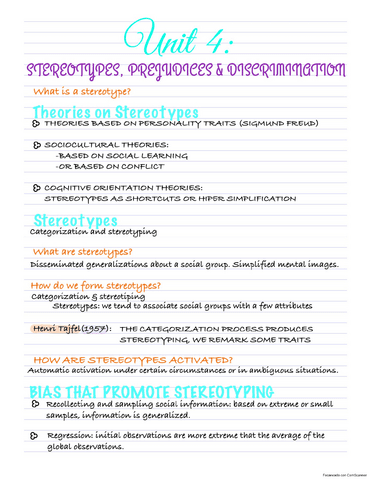 Unit 4:
STEREOTYPES, PREJUDICES & DISCRIMINATION
What is a stereotype?
Theories on Stereotypes
THEORIES BASED ON PERSONALITY TRAITS (SIGMUND FREUD)
SOCIOCULTURAL THEORIES:
-BASED ON SOCIAL LEARNING
-OR BASED ON CONFLICT
COGNITIVE ORIENTATION THEORIES:
STEREOTYPES AS SHORTCUTS OR HIPER SIMPLIFICATION
Stereotypes
Categorization and stereotyping
What are stereotypes?
Disseminated generalizations about a social group. Simplified mental images.
How do we form stereotypes?
Categorization & stereotiping
Stereotypes: we tend to associate social groups with a few attributes
Henri Tajfel(1957): THE CATEGORIZATION PROCESS PRODUCES
STEREOTYPING, WE REMARK SOME TRAITS
HOW ARE STEREOTYPES ACTIVATED?
Automatic activation under certain circumstances or in ambiguous situations.
BIAS THAT PROMOTE STEREOTYPING
Recollecting and sampling social information: based on extreme or small
samples, information is generalized.
Regression: initial observations are more extreme that the average of the
global observations.
Escaneado con CamScanner